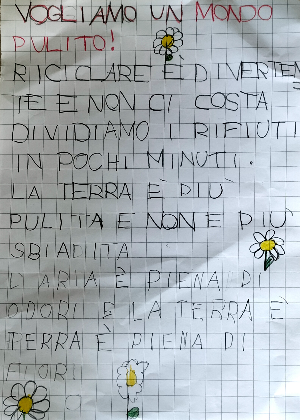 VOGLIAMO UN MONDO
PULITO!
RICICLARE È DIVERTEN
TE E NON CI COSTA
DIVIDIAMO I RIFIUTI
IN POCHI MINUTI.
LA TERRA È PIÙ
PULITA E NON E PIU'
SBIADITA
L'ARIA È PIENA DI
ODORI E LA TERRA È
TERRA È PIENA DI
FIORI